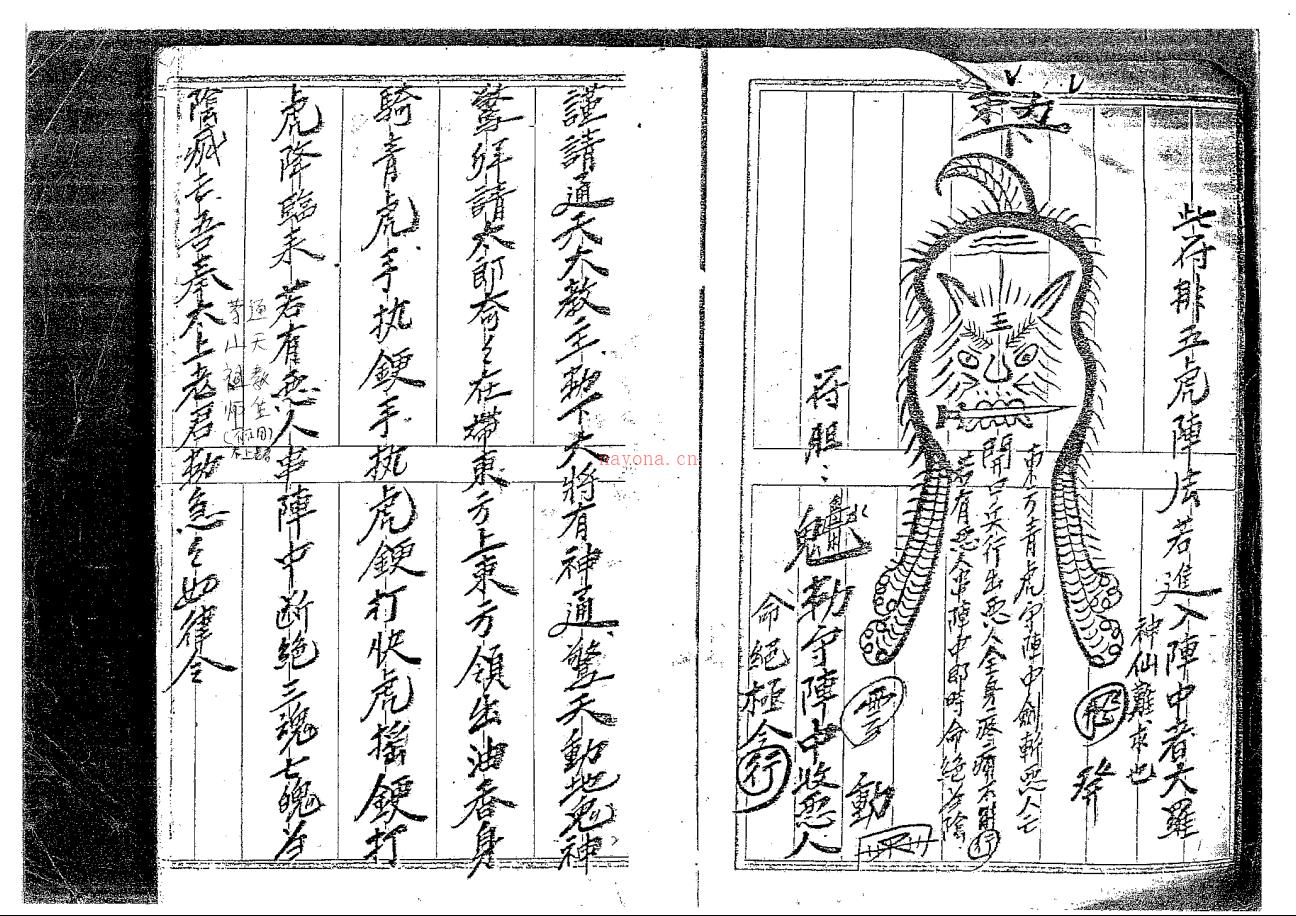 此符排五虎陣法若進入陣中者大羅
神仙難求也
發
東方青虎守陣中劍斬惡人亡
開口兵行出惡人全身
若有惡人串陣中即時命絕為陰
行
雲
動
符胆:
勅守陣中收惡人
命絕極令
行
謹請通天大教主勅下大將有神通驚天動地鬼神
驚拜請太郎奇々在壇東方上東方領出油吞身
騎青虎手执鍊手执虎鍊打快虎搖鍊打
虎降臨來若有惡人串陣中断絕三魂七魄為
通天教主
茅山祖師
陰滅去吾奉太上老君勅急々如律令
nayona.cn